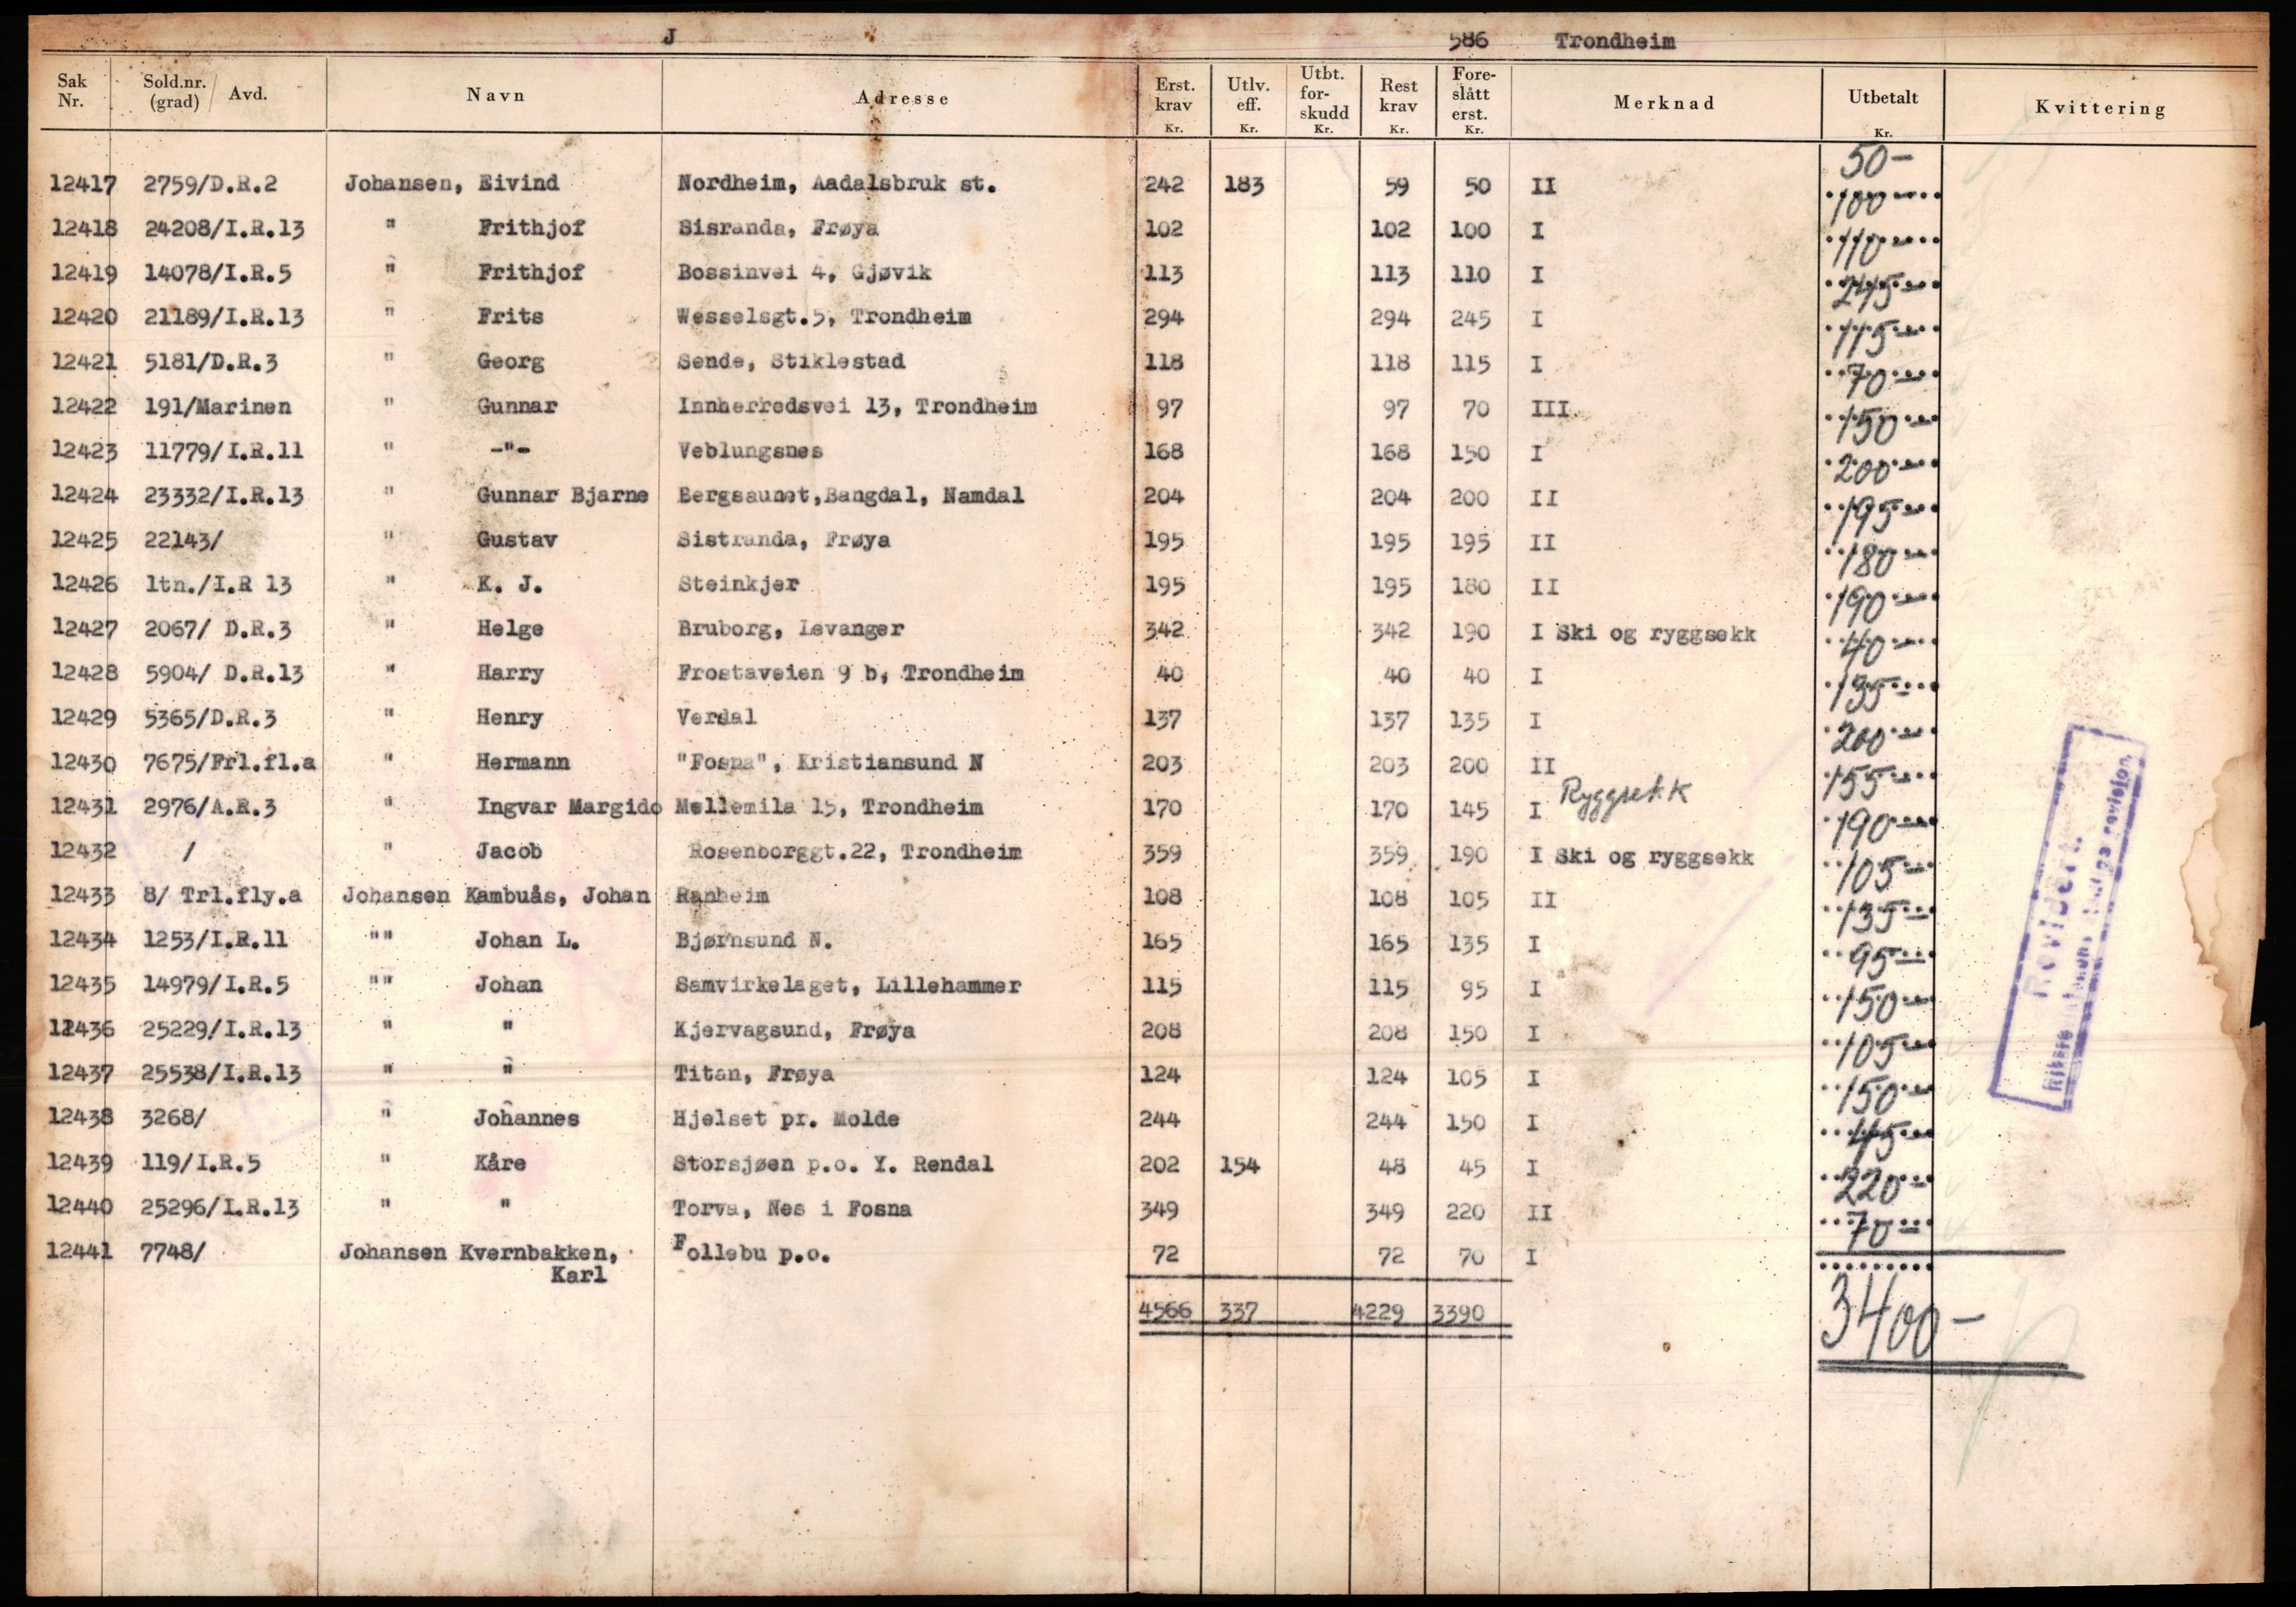 J 586 Trondheim
Sak Nr. Sold.nr. (grad) / Avd. Navn Adresse Erst. krav Kr. Utlv. eff. Kr. Utbt. for- skudd Kr. Rest krav Kr. Fore- slått erst. Kr. Merknad Utbetalt Kr. Kvittering
12417 2759/D.R.2 Johansen, Eivind Nordheim, Aadalsbruk st. 242 183 59 50 II 50-
12418 24208/I.R.13 " Frithjof Sisranda, Frøya 102 102 100 I 100-
12419 14078/I.R.5 " Frithjof Bossinvei 4, Gjøvik 113 113 110 I 110-
12420 21189/I.R.13 " Frits Wesselsgt.5, Trondheim 294 294 245 I 245-
12421 5181/D.R.3 " Georg Sende, Stiklestad 118 118 115 I 115-
12422 191/Marinen " Gunnar Innherredsvei 13, Trondheim 97 97 70 III 70-
12423 11779/I.R.11 " -"- Veblungsnes 168 168 150 I 150-
12424 23332/I.R.13 " Gunnar Bjarne Bergsaunet,Bangdal, Namdal 204 204 200 II 200-
12425 22143/ " Gustav Sistranda, Frøya 195 195 195 II 195-
12426 ltn./I.R 13 " K. J. Steinkjer 195 195 180 II 180-
12427 2067/ D.R.3 " Helge Bruborg, Levanger 342 342 190 I Ski og ryggsekk 190-
12428 5904/ D.R.13 " Harry Frostaveien 9 b, Trondheim 40 40 40 I 40-
12429 5365/D.R.3 " Henry Verdal 137 137 135 I 135-
12430 7675/Frl.fl.a " Hermann "Fosna", Kristiansund N 203 203 200 II 200-
12431 2976/A.R.3 " Ingvar Margido Mellemila 15, Trondheim 170 170 145 I Ryggsekk 155-
12432 / " Jacob Rosenborggt.22, Trondheim 359 359 190 I Ski og ryggsekk 190-
12433 8/ Trl.fly.a Johansen Kambuås, Johan Ranheim 108 108 105 II 105-
12434 1253/I.R.11 "" Johan L. Bjørnsund N. 165 165 135 I 135-
12435 14979/I.R.5 "" Johan Samvirkelaget, Lillehammer 115 115 95 I 95-
12436 25229/I.R.13 " " Kjervagsund, Frøya 208 208 150 I 150-
12437 25538/I.R.13 " " Titan, Frøya 124 124 105 I 105-
12438 3268/ " Johannes Hjelset pr. Molde 244 244 150 I 150-
12439 119/I.R.5 " Kåre Storsjøen p.o. Y. Rendal 202 154 48 45 I 45-
12440 25296/I.R.13 " " Torva, Nes i Fosna 349 349 220 II 220-
12441 7748/ Johansen Kvernbakken, Follebu p.o. 72 72 70 I 70-
Karl
4566 337 4229 3390 3400-
Revidert.
revisjon